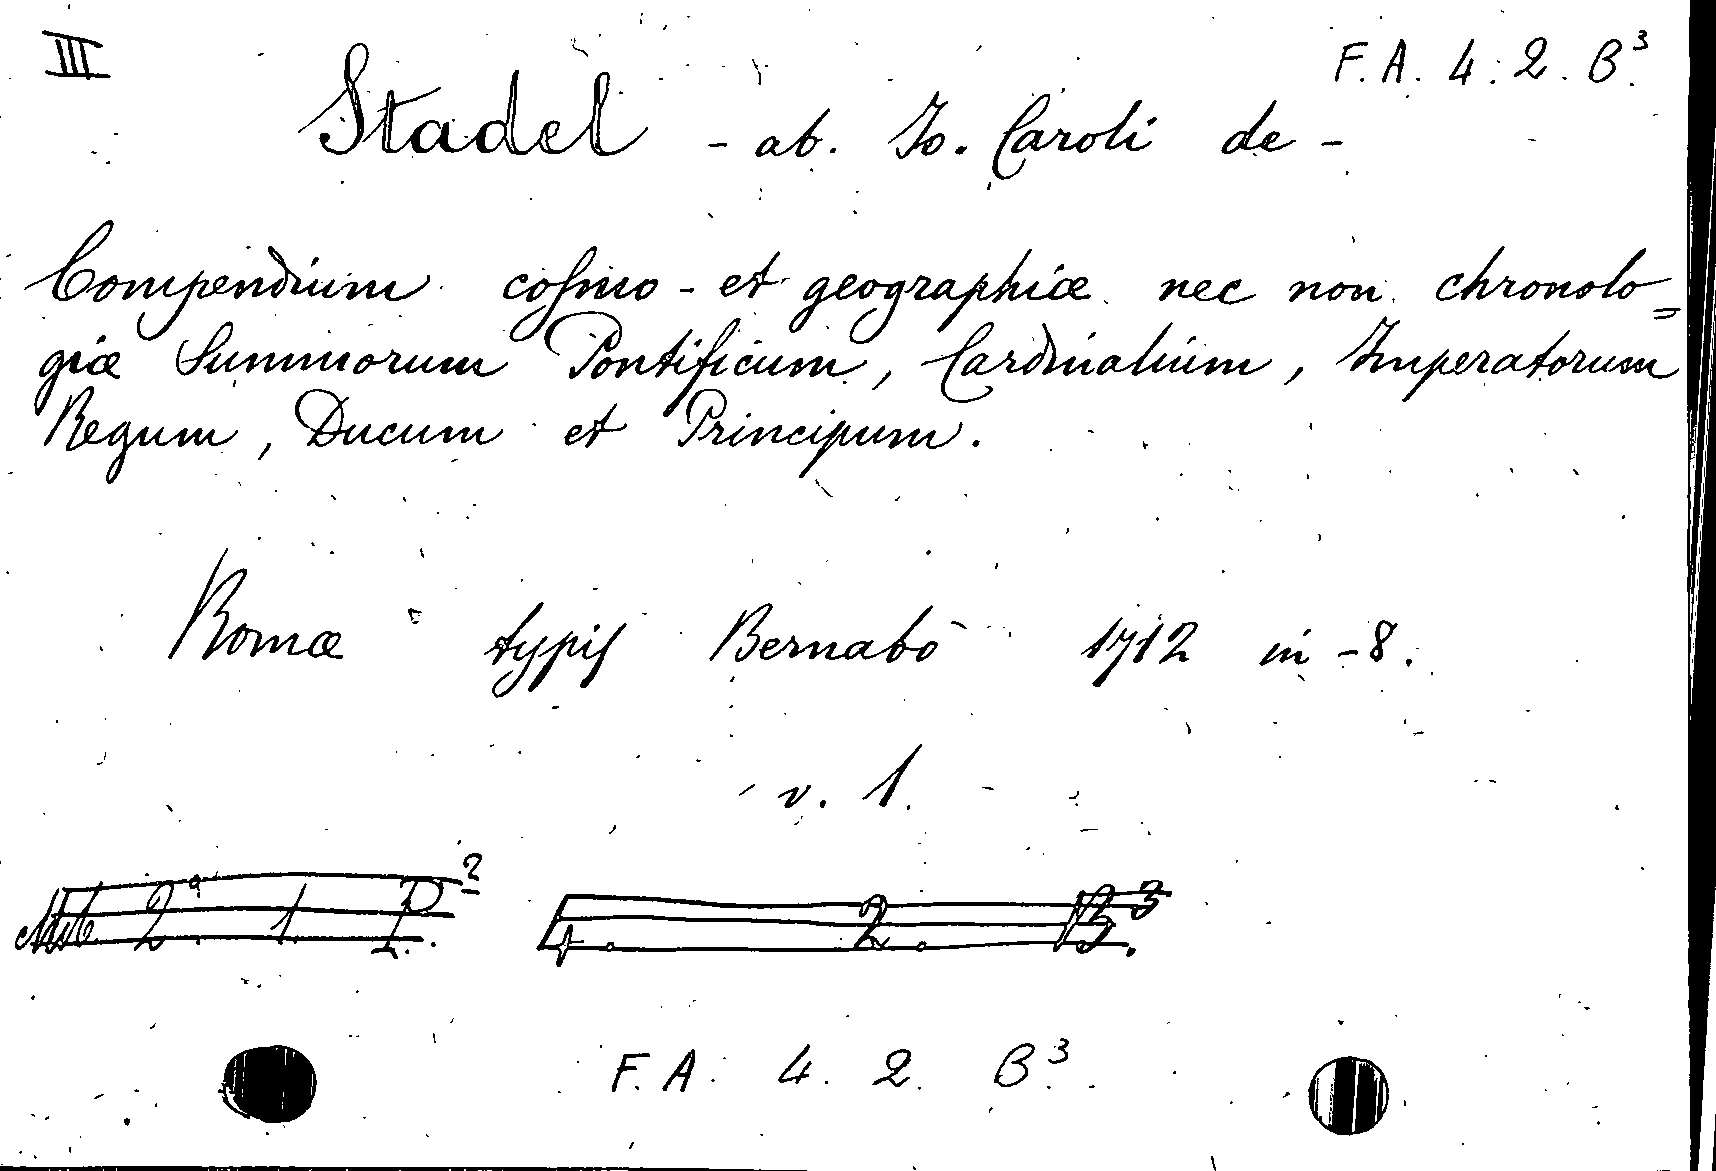 III
F. A. 4. 2. B.³
Stadel - ab. Jo. Caroli de -
Compendium cosmo - et geographiæ nec non chronolo=
giæ Summorum Pontificum, Cardinalium, Imperatorum
Regum, Ducum et Principum.
Romæ typis Bernabò 1712 in-8.
v. 1.
2ª. 1. P.² 4. 2. B.³
F. A. 4. 2. B.³